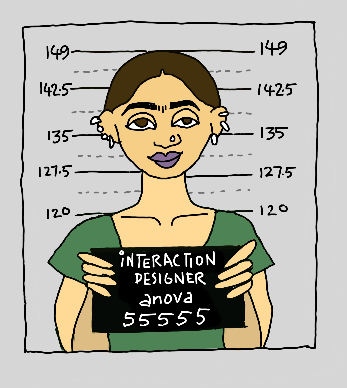 149 149
142.5 142.5
135 135
127.5 127.5
120 120
iNTERACTION
DESIGNER
anova
55555